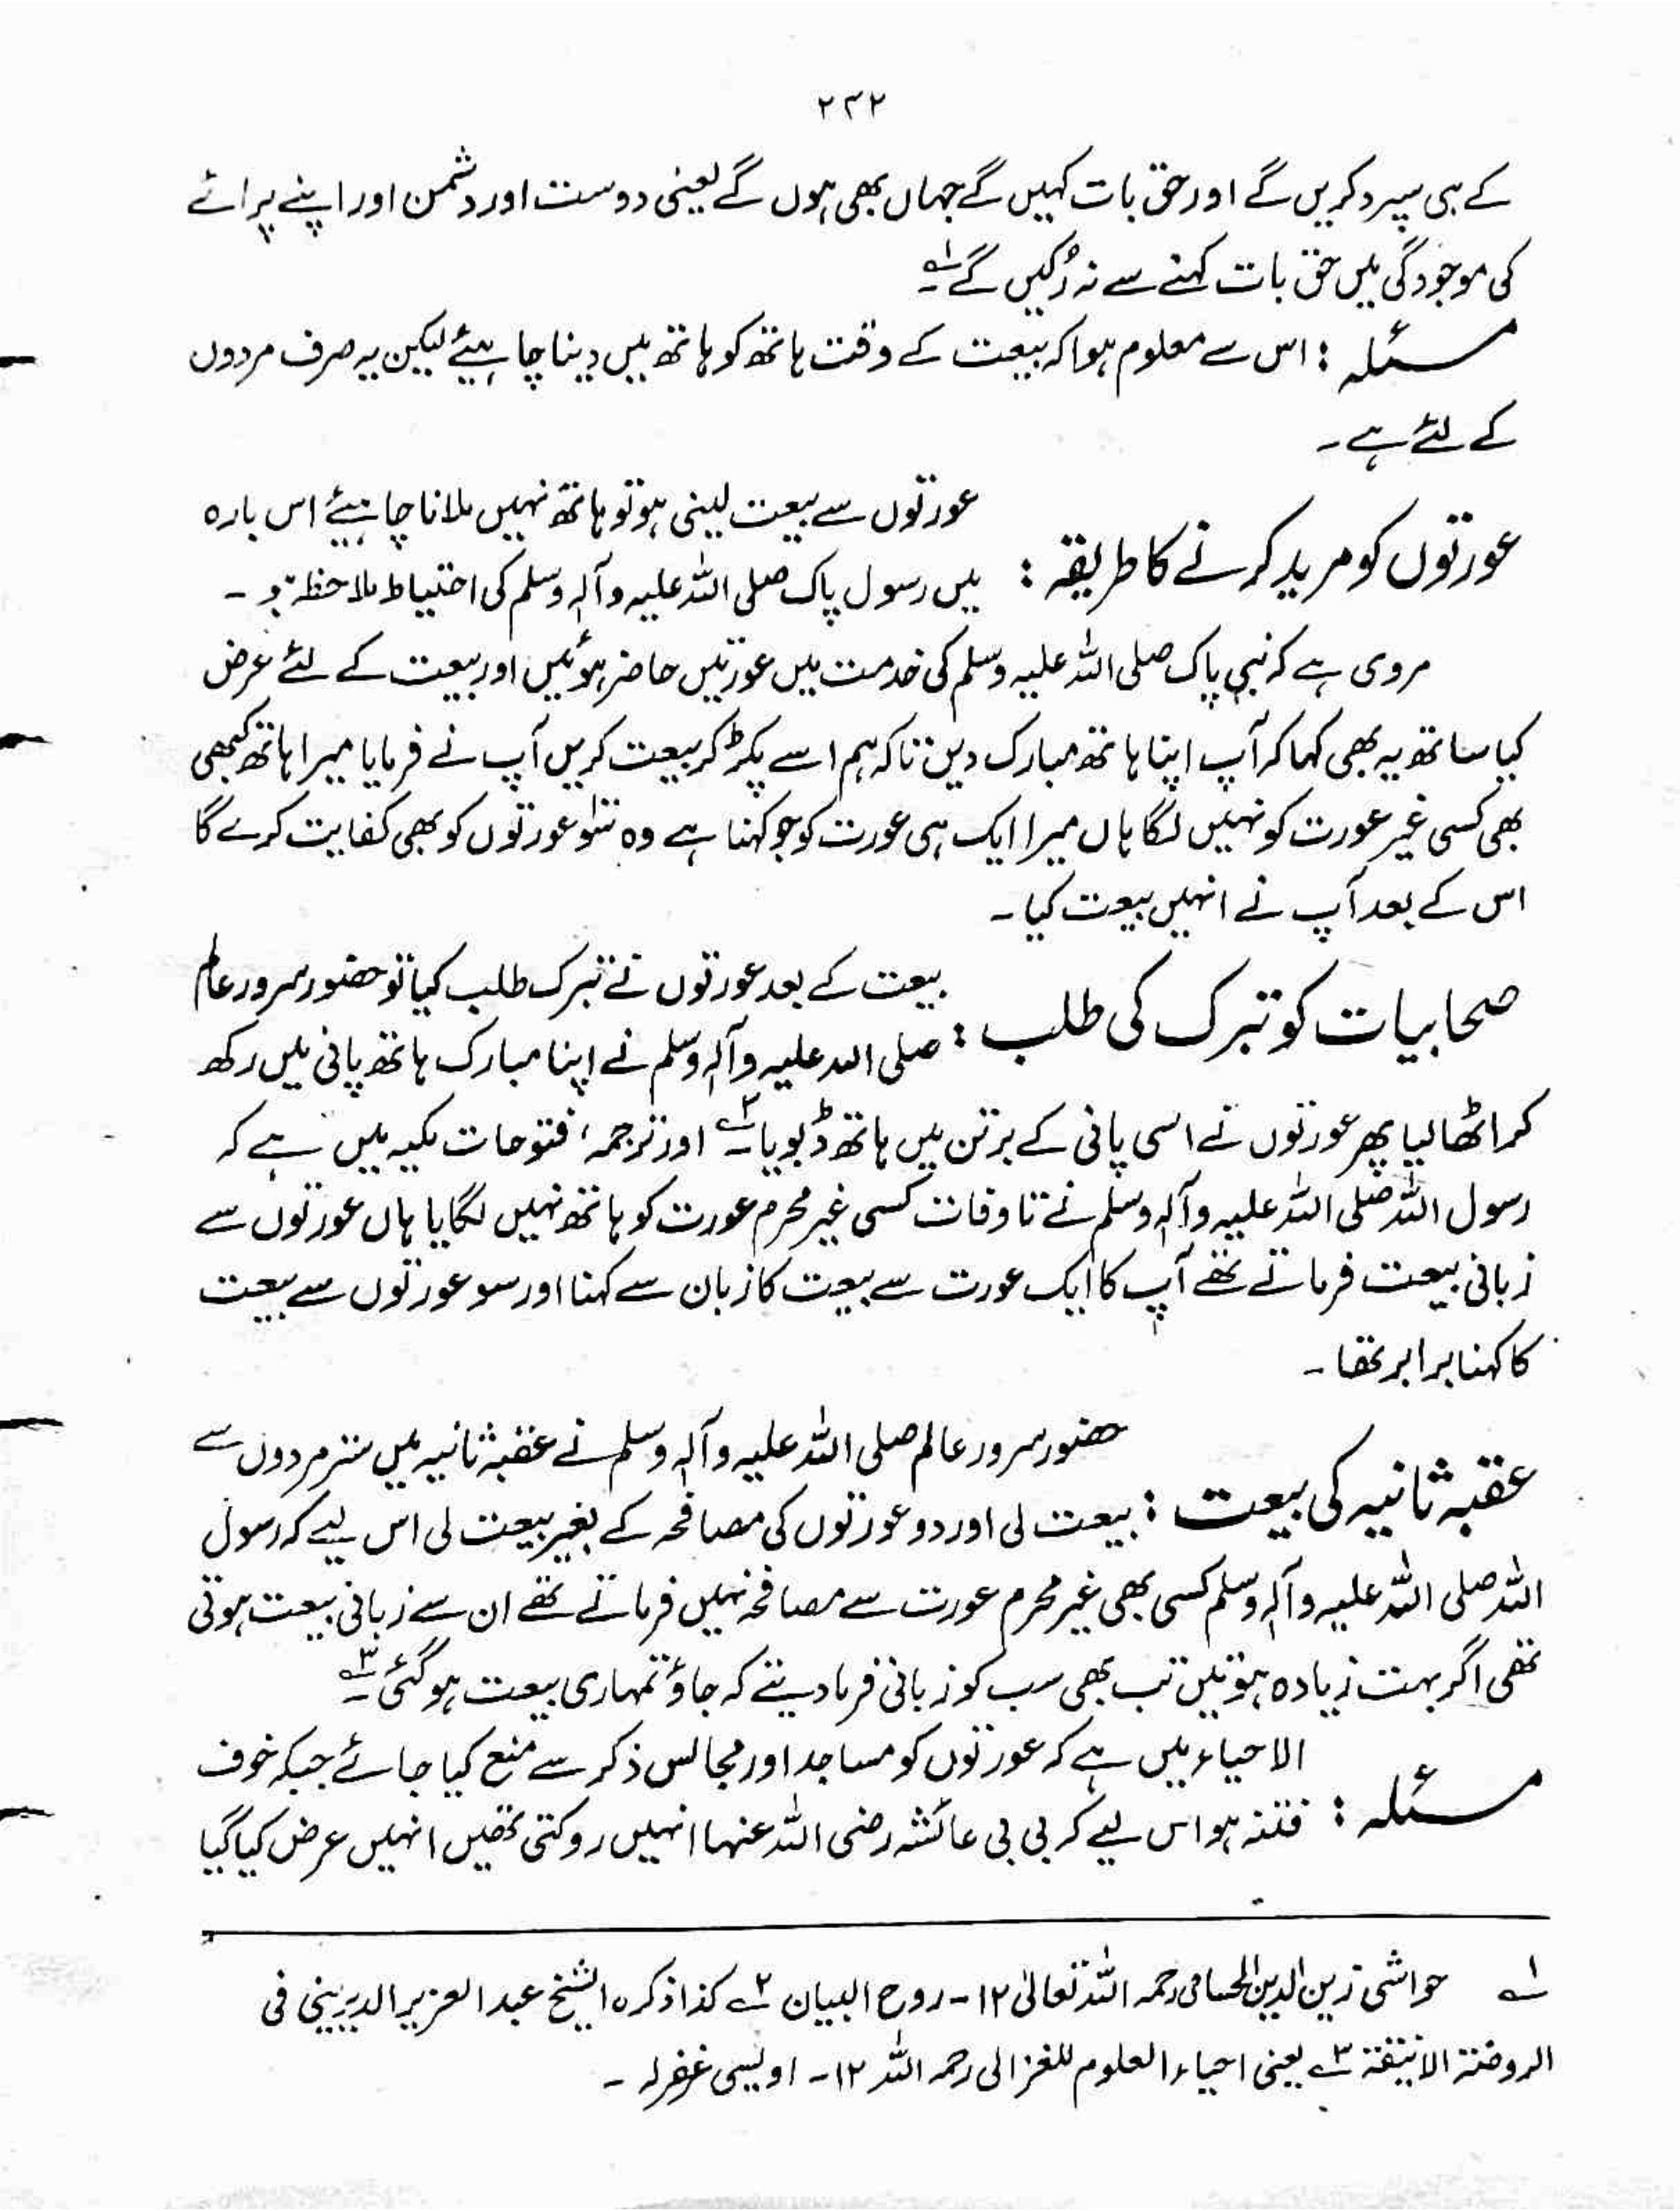 ۲۳۲
کے ہی سپرد کریں گے اور حق بات کہیں گے جہاں بھی ہوں گے یعنی دوست اور دشمن اور اپنے پرائے
کی موجودگی میں حق بات کہنے سے نہ رُکیں گے۔ ۱؎
مسئلہ : اس سے معلوم ہوا کہ بیعت کے وقت ہاتھ کو ہاتھ میں دینا چاہیئے لیکن یہ صرف مردوں
کے لئے ہے۔
عورتوں کو مرید کرنے کا طریقہ : عورتوں سے بیعت لینی ہو تو ہاتھ نہیں ملانا چاہیئے اس بارہ
میں رسول پاک صلی اللہ علیہ وآلہٖ وسلم کی احتیاط ملاحظہ ہو۔
مروی ہے کہ نبی پاک صلی اللہ علیہ وسلم کی خدمت میں عورتیں حاضر ہوئیں اور بیعت کے لئے عرض
کیا ساتھ یہ بھی کہا کہ آپ اپنا ہاتھ مبارک دیں تاکہ ہم اسے پکڑ کر بیعت کریں آپ نے فرمایا میرا ہاتھ کبھی
بھی کسی غیر عورت کو نہیں لگا ہاں میرا ایک ہی عورت کو جو کہنا ہے وہ سَو عورتوں کو بھی کفایت کرے گا
اس کے بعد آپ نے انہیں بیعت کیا۔
صحابیات کو تبرک کی طلب : بیعت کے بعد عورتوں نے تبرک طلب کیا تو حضور سرور عالم
صلی اللہ علیہ وآلہٖ وسلم نے اپنا مبارک ہاتھ پانی میں رکھ
کر اٹھا لیا پھر عورتوں نے اسی پانی کے برتن میں ہاتھ ڈبویا۔ ۲؎ اور ترجمہ، فتوحات مکیہ میں ہے کہ
رسول اللہ صلی اللہ علیہ وآلہٖ وسلم نے تا وفات کسی غیر محرم عورت کو ہاتھ نہیں لگایا ہاں عورتوں سے
زبانی بیعت فرماتے تھے آپ کا ایک عورت سے بیعت کا زبان سے کہنا اور سو عورتوں سے بیعت
کا کہنا برابر تھا۔
عقبہ ثانیہ کی بیعت : حضور سرور عالم صلی اللہ علیہ وآلہٖ وسلم نے عقبہ ثانیہ میں ستر مردوں سے
بیعت لی اور دو عورتوں کی مصافحہ کے بغیر بیعت لی اس لیے کہ رسول
اللہ صلی اللہ علیہ وآلہٖ وسلم کسی بھی غیر محرم عورت سے مصافحہ نہیں فرماتے تھے ان سے زبانی بیعت ہوتی
تھی اگر بہت زیادہ ہوتیں تب بھی سب کو زبانی فرما دیتے کہ جاؤ تمہاری بیعت ہو گئی۔ ۳؎
مسئلہ : الاحیاء میں ہے کہ عورتوں کو مساجد اور مجالس ذکر سے منع کیا جائے جبکہ خوف
فتنہ ہو اس لیے کہ بی بی عائشہ رضی اللہ عنہا انہیں روکتی تھیں انہیں عرض کیا گیا
۱؎ حواشی زین الدین الحسامی رحمہ اللہ تعالیٰ ۱۲۔ روح البیان ۲؎ کذا ذکرہ الشیخ عبدالعزیز الدیرینی فی
الروضۃ الانیقۃ ۳؎ یعنی احیاء العلوم للغزالی رحمہ اللہ ۱۲۔ اویسی غفرلہ۔